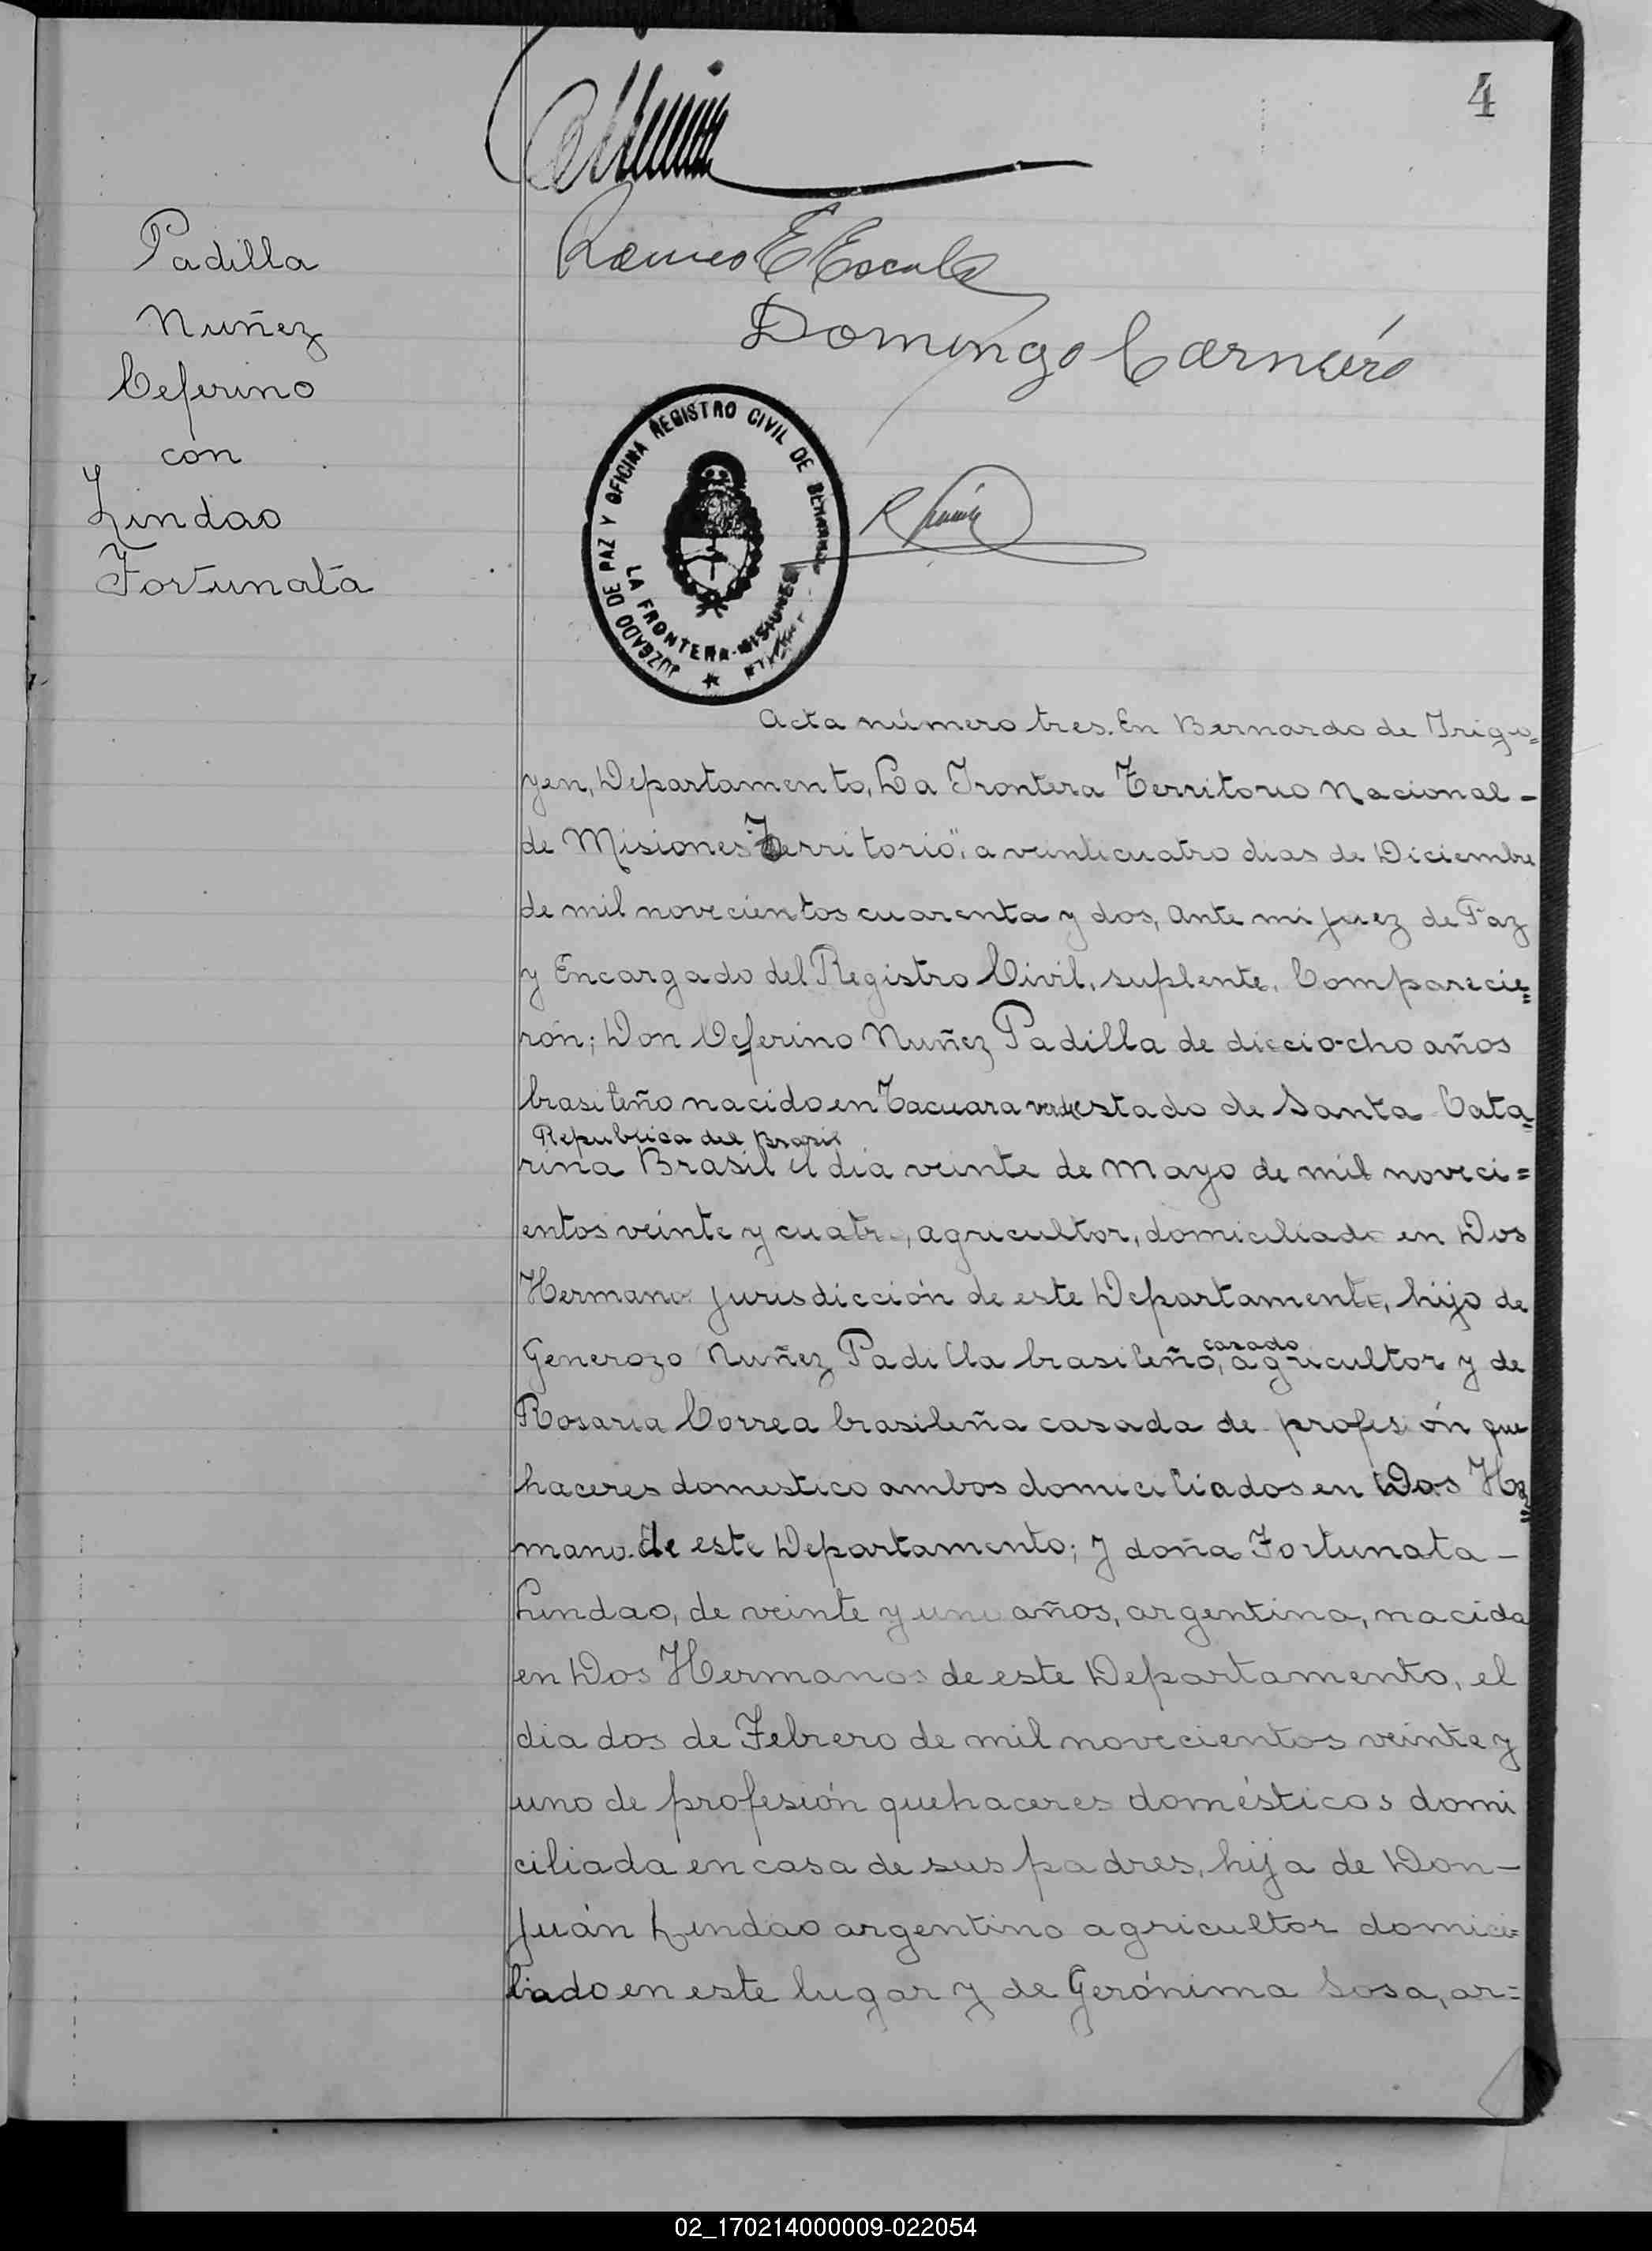 4
Romeo E Escala
Domingo Carneiro
Padilla
Nuñez
Ceferino
con
Lindao
Fortunata
JUZGADO DE PAZ Y OFICINA REGISTRO CIVIL DE BERNARDO
LA FRONTERA-MISIONES
Acta número tres. En Bernardo de Irigo=
yen, Departamento, La Frontera Territorio Nacional -
de Misiones "Territorio", a veinticuatro dias de Diciembre
de mil novecientos cuarenta y dos, ante mi Juez de Paz
y Encargado del Registro Civil, suplente, Comparecie=
rón; Don Ceferino Nuñez Padilla de diecio-cho años
brasileño nacido en Tacuara verde estado de Santa Cata=
Republica del Brasil
rina Brasil el dia veinte de Mayo de mil noveci=
entos veinte y cuatro, agricultor, domiciliado en Dos
Hermano jurisdicción de este Departamento, hijo de
casado
Generozo Nuñez Padilla brasileño, agricultor y de
Rosaria Correa brasileña casada de profesión que
haceres domestico ambos domiciliados en Dos Her=
mano. de este Departamento; y doña Fortunata -
Lindao, de veinte y uno años, argentina, nacida
en Dos Hermanos de este Departamento, el
dia dos de Febrero de mil novecientos veinte y
uno de profesión quehaceres domésticos domi
ciliada en casa de sus padres, hija de Don -
Juán Lindao argentino agricultor domici=
liado en este lugar y de Gerónima Sosa, ar=
02_170214000009-022054